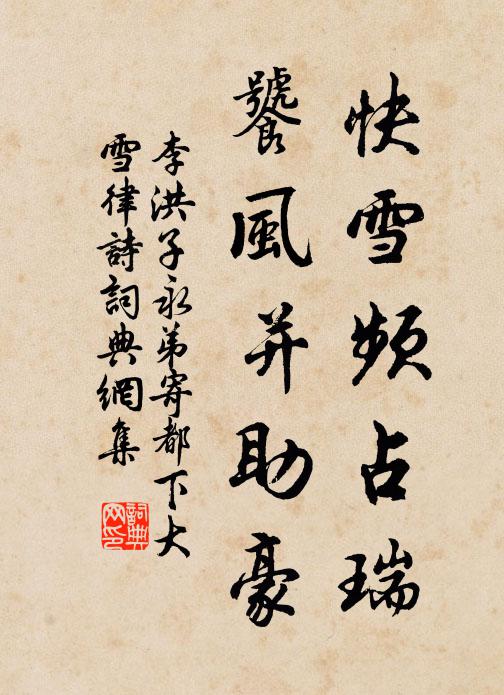 快雪頻占瑞
饕風并助豪
李洪子永弟寄都下大
雪律詩詞典網集
詞典
网印